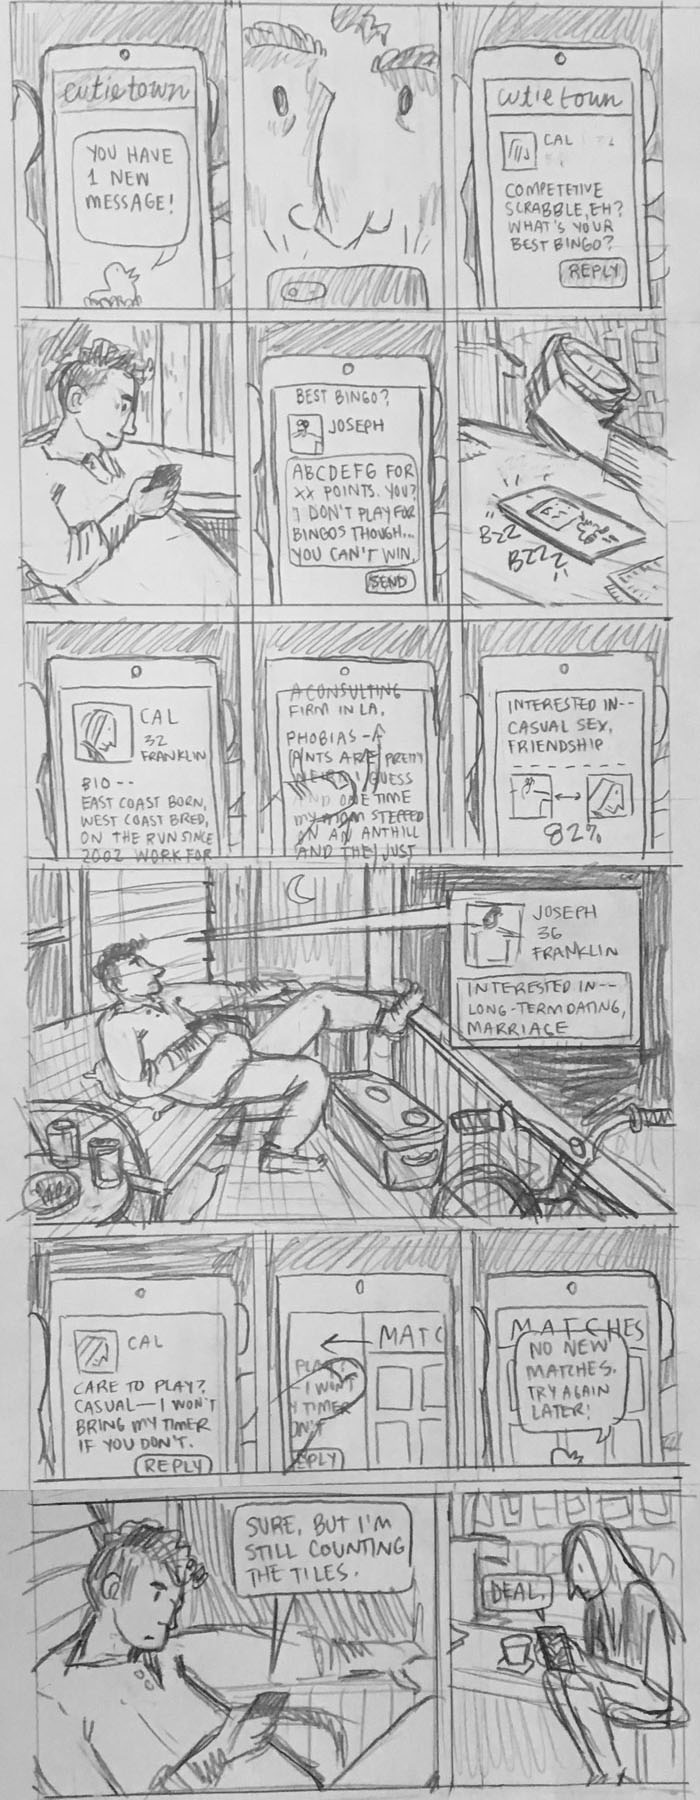 cutietown
YOU HAVE
1 NEW
MESSAGE!
cutietown
CAL
COMPETETIVE
SCRABBLE, EH?
WHAT'S YOUR
BEST BINGO?
REPLY
BEST BINGO?
JOSEPH
ABCDEFG FOR
XX POINTS. YOU?
I DON'T PLAY FOR
BINGOS THOUGH...
YOU CAN'T WIN.
SEND
BZZ
BZZZ
CAL
32
FRANKLIN
BIO --
EAST COAST BORN,
WEST COAST BRED,
ON THE RUN SINCE
2002 WORK FOR
A CONSULTING
FIRM IN LA.
PHOBIAS -
ANTS ARE PRETTY
WEIRD I GUESS
AND ONE TIME
MY MOM STEPPED
ON AN ANTHILL
AND THEY JUST
INTERESTED IN--
CASUAL SEX,
FRIENDSHIP
82%
JOSEPH
36
FRANKLIN
INTERESTED IN--
LONG-TERM DATING,
MARRIAGE
CAL
CARE TO PLAY?
CASUAL— I WON'T
BRING MY TIMER
IF YOU DON'T.
REPLY
MATC
PLAY?
- I WON'T
Y TIMER
ON'T
EPLY
MATCHES
NO NEW
MATCHES.
TRY AGAIN
LATER!
SURE, BUT I'M
STILL COUNTING
THE TILES.
DEAL.